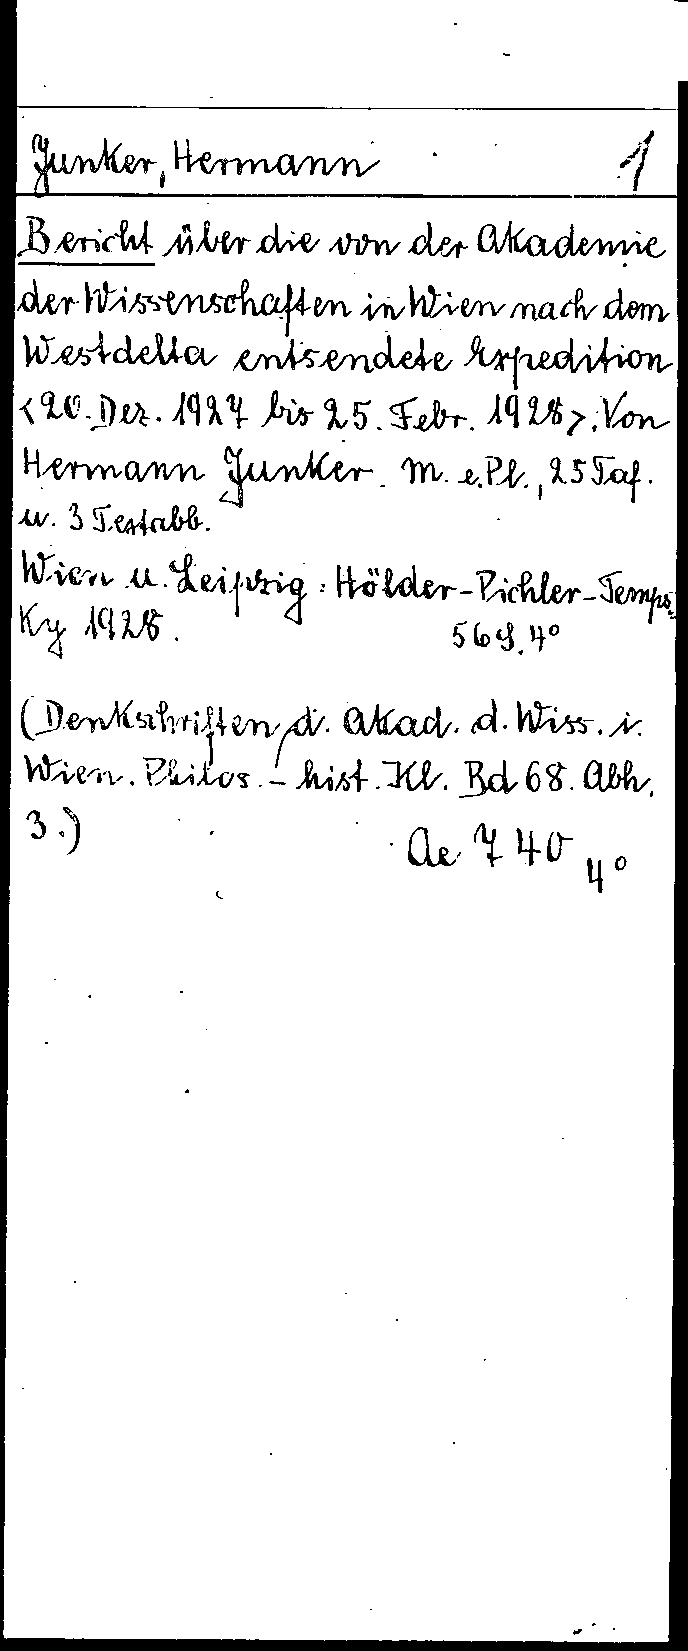 Junker, Hermann 1
Bericht über die von der Akademie
der Wissenschaften in Wien nach dem
Westdelta entsendete Expedition
<20. Dez. 1927 bis 25. Febr. 1928>. Von
Hermann Junker. M. e. Pl., 25 Taf.
u. 3 Textabb.
Wien u. Leipzig: Hölder-Pichler-Temps-
ky 1928. 56 S. 4°
(Denkschriften d. Akad. d. Wiss. i.
Wien. Philos.-hist. Kl. Bd 68. Abh.
3.)
Ae 740 4°